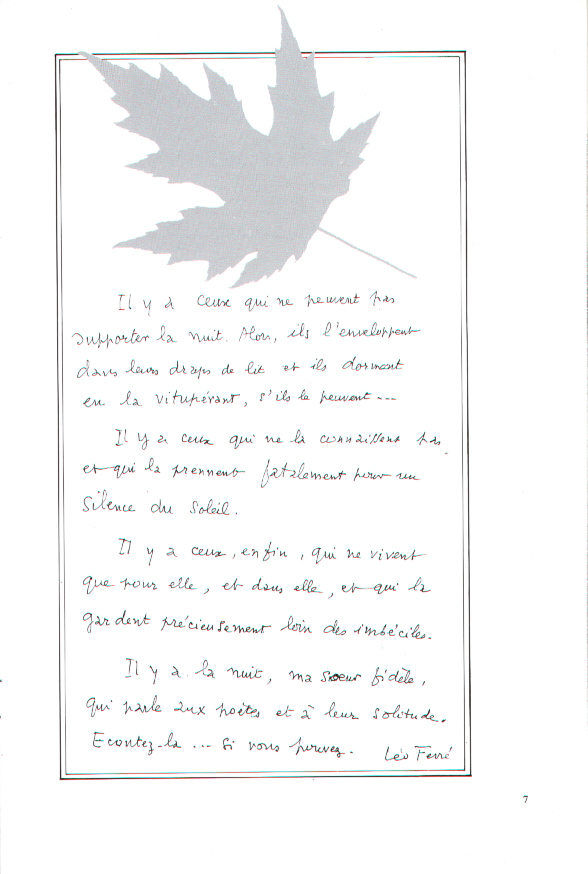 Il y a ceux qui ne peuvent pas
supporter la nuit. Alors, ils l'enveloppent
dans leurs draps de lit et ils dorment
en la vitupérant, s'ils le peuvent...
Il y a ceux qui ne la connaissent pas
et qui la prennent fatalement pour un
silence du soleil.
Il y a ceux, enfin, qui ne vivent
que pour elle, et dans elle, et qui la
gardent précieusement loin des imbéciles.
Il y a la nuit, ma sœur fidèle,
qui parle aux poètes et à leur solitude.
Ecoutez-la ... Si vous pouvez.
Léo Ferré
7